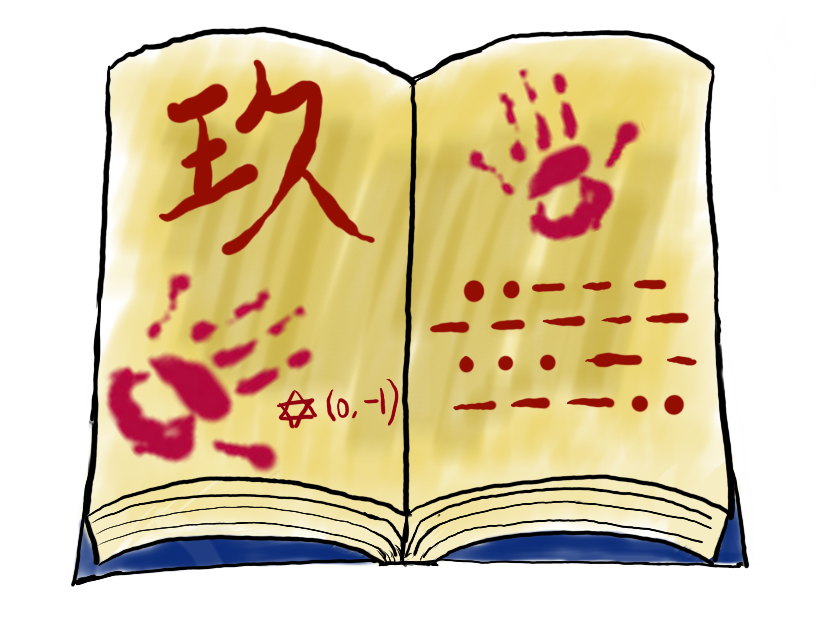 玖
✡ (0, -1)
●●— — —
— — — — —
●●●— —
— — —●●